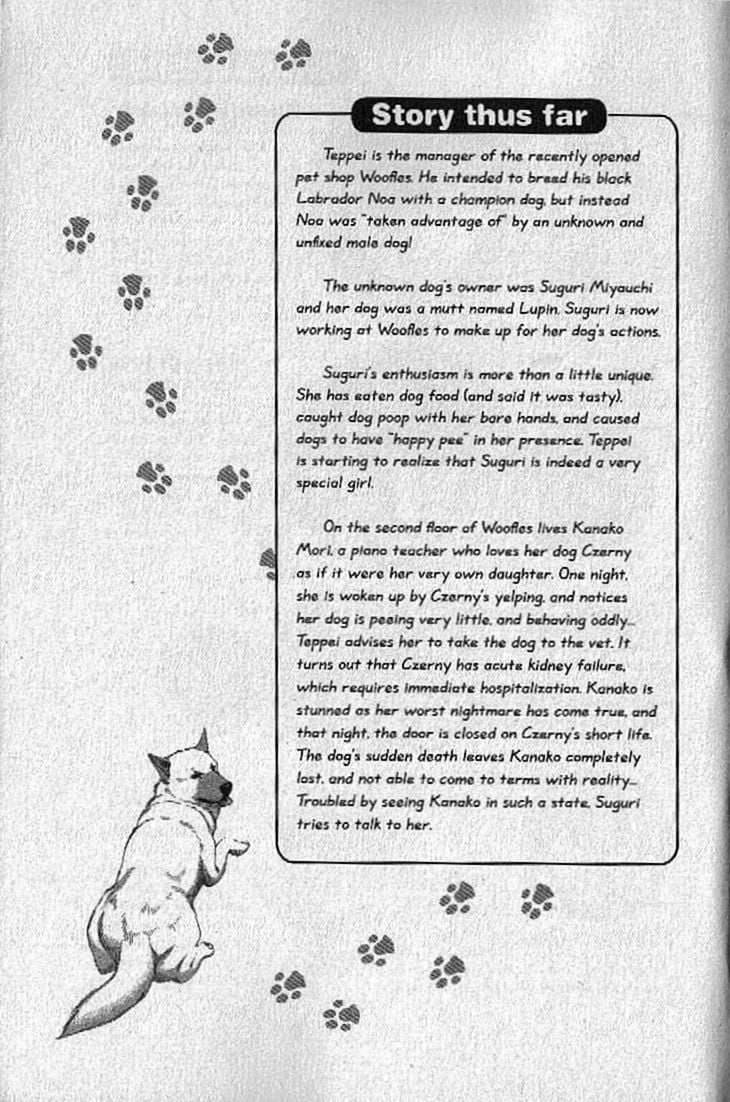 Story thus far
Teppei is the manager of the recently opened
pet shop Woofles. He intended to breed his black
Labrador Noa with a champion dog, but instead
Noa was "taken advantage of" by an unknown and
unfixed male dog!
The unknown dog's owner was Suguri Miyauchi
and her dog was a mutt named Lupin. Suguri is now
working at Woofles to make up for her dog's actions.
Suguri's enthusiasm is more than a little unique.
She has eaten dog food (and said it was tasty),
caught dog poop with her bare hands, and caused
dogs to have "happy pee" in her presence. Teppei
is starting to realize that Suguri is indeed a very
special girl.
On the second floor of Woofles lives Kanako
Mori, a piano teacher who loves her dog Czerny
as if it were her very own daughter. One night,
she is woken up by Czerny's yelping, and notices
her dog is peeing very little, and behaving oddly...
Teppei advises her to take the dog to the vet. It
turns out that Czerny has acute kidney failure,
which requires immediate hospitalization. Kanako is
stunned as her worst nightmare has come true, and
that night, the door is closed on Czerny's short life.
The dog's sudden death leaves Kanako completely
lost, and not able to come to terms with reality...
Troubled by seeing Kanako in such a state, Suguri
tries to talk to her.